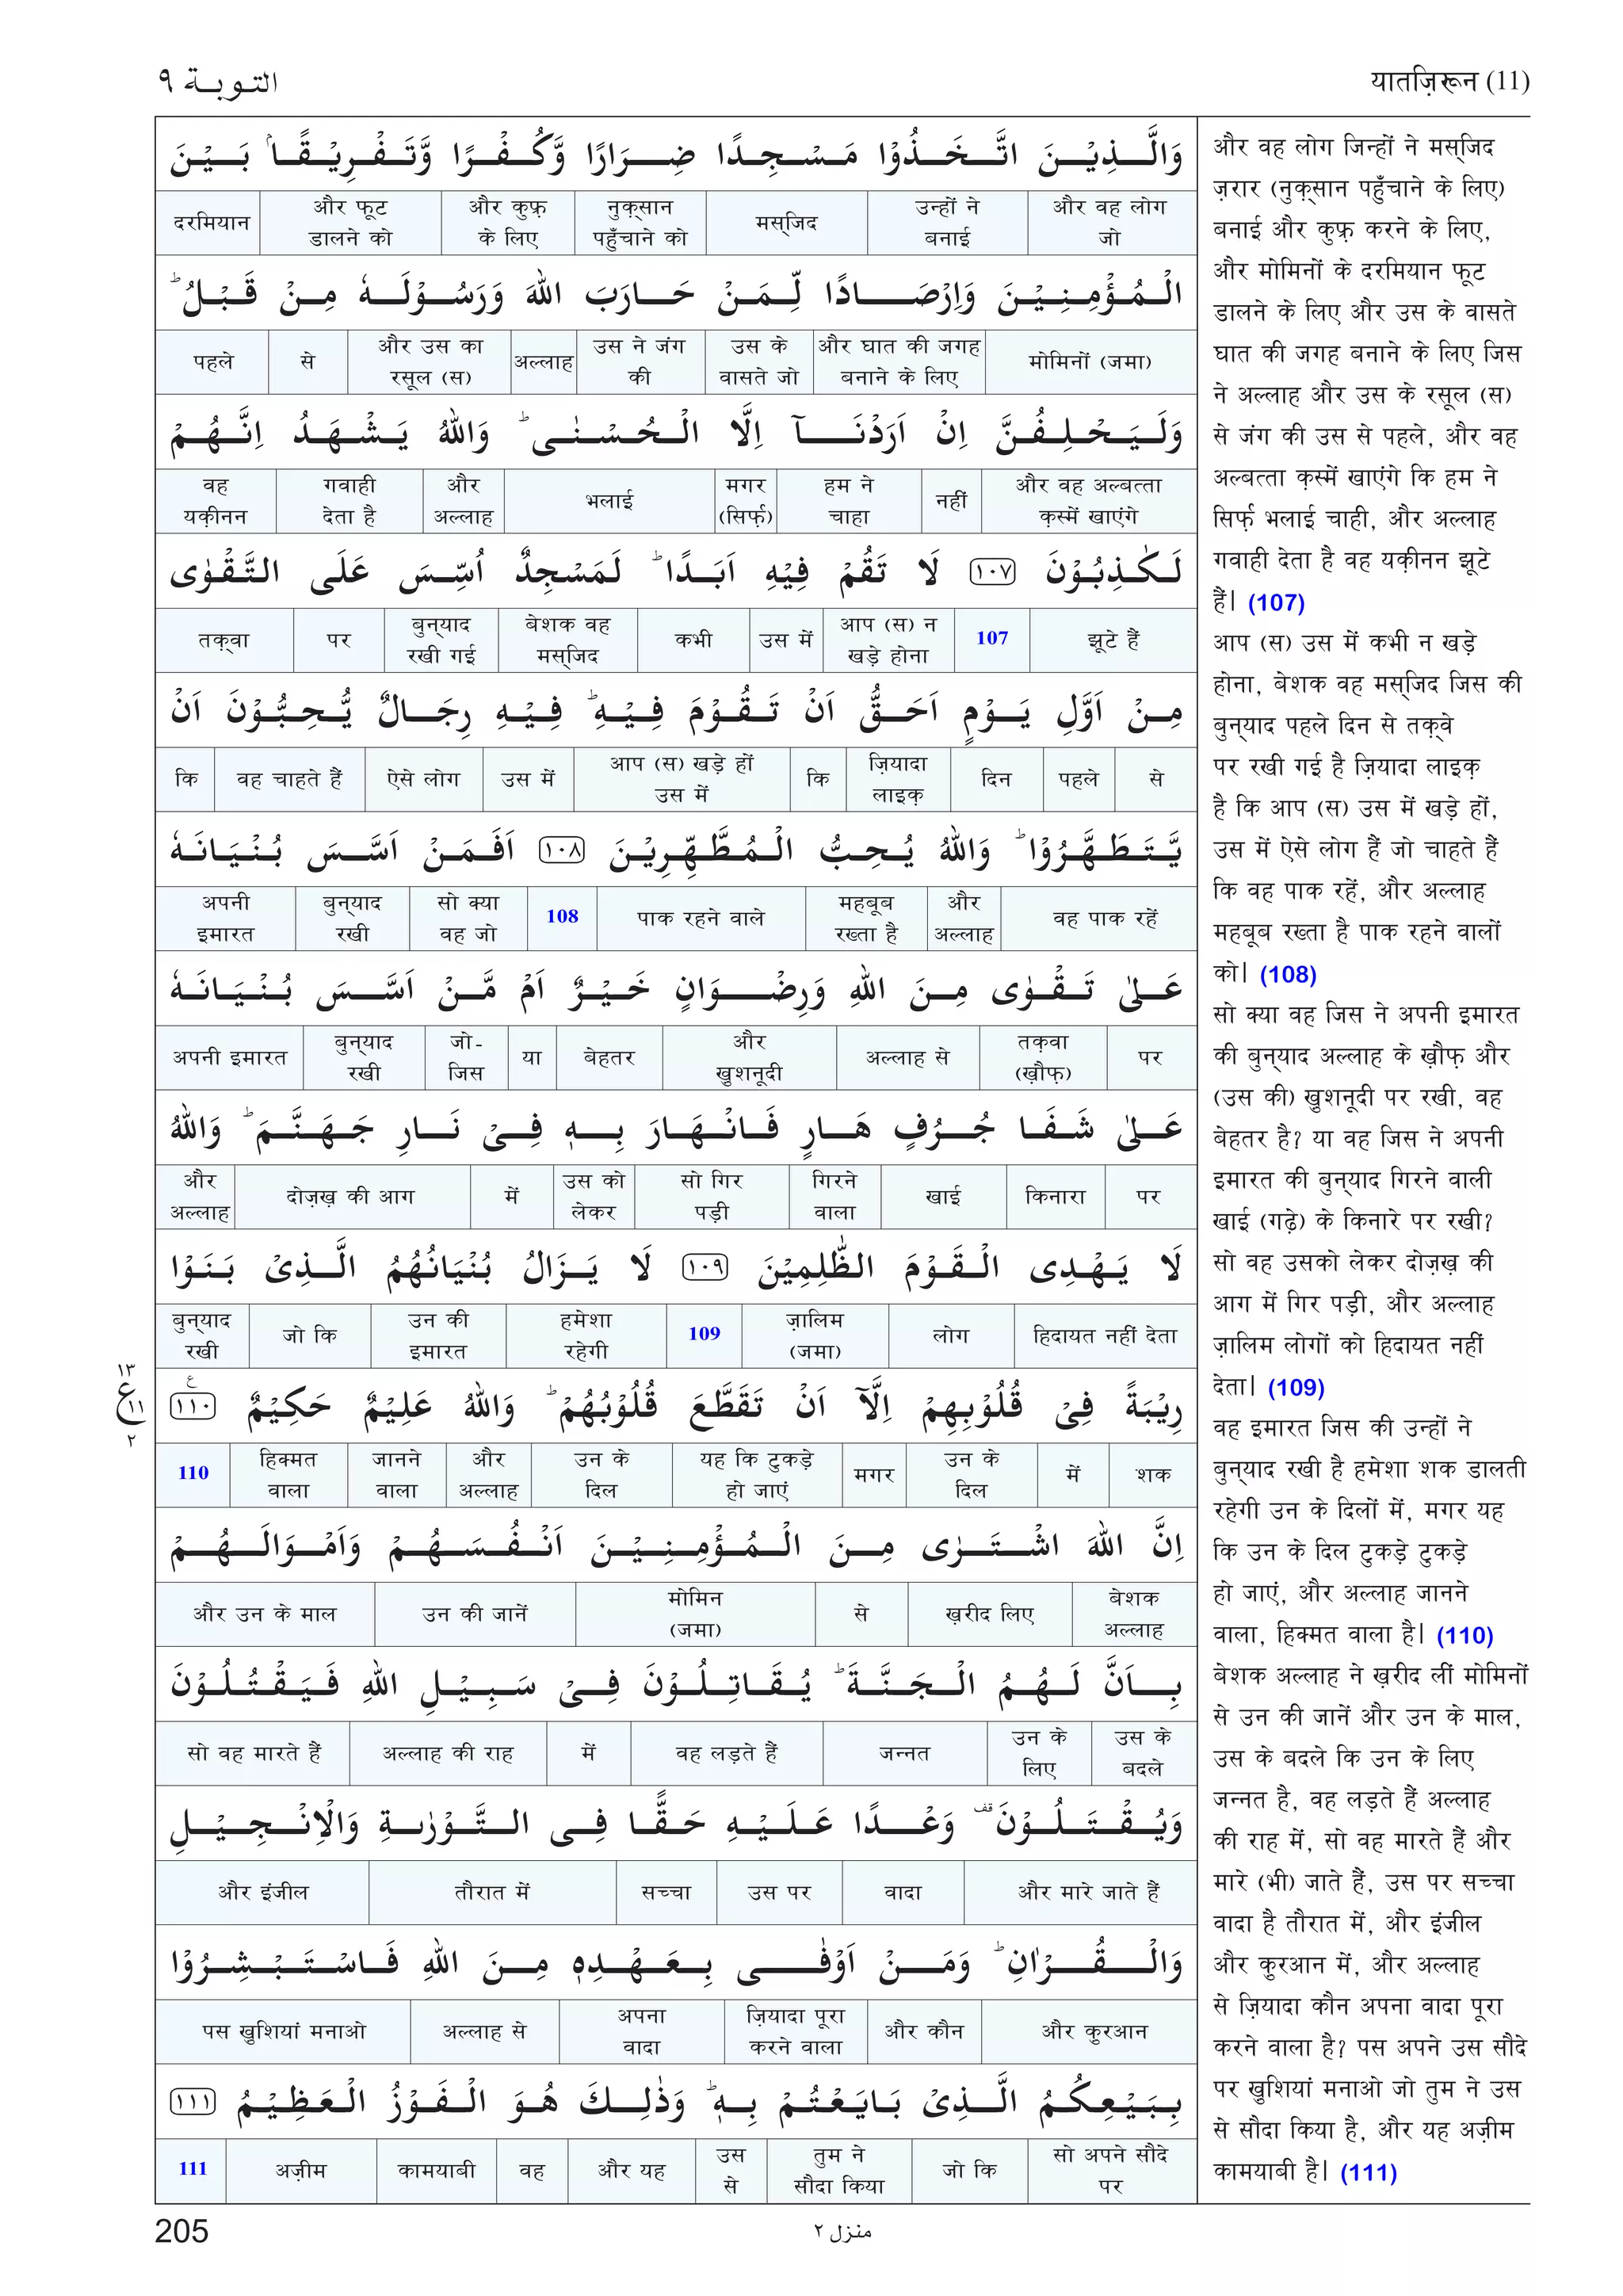 التوبة ٩
यातज़िरून (11)
وَالَّذِيْنَ اتَّخَذُوْا مَسْجِدًا ضِرَارًا وَّكُفْرًا وَّتَفْرِيْقًۢا بَيْنَ
और वह लोग जो | उन्हों ने बनाई | मस्जिद | नुक्सान पहुँचाने को | और कुफ़्र के लिए | और फूट डालने को | दरमियान
الْمُؤْمِنِيْنَ وَاِرْصَادًا لِّمَنْ حَارَبَ اللهَ وَرَسُوْلَهٗ مِنْ قَبْلُ ؕ
मोमिनों (जमा) | और घात की जगह बनाने के लिए | उस के वासते जो | उस ने जंग की | अल्लाह | और उस का रसूल (स) | से | पहले
وَلَيَحْلِفُنَّ اِنْ اَرَدْنَآ اِلَّا الْحُسْنٰى ؕ وَاللهُ يَشْهَدُ اِنَّهُمْ
और वह अल्बत्ता क़स्में खाएंगे | नहीं | हम ने चाहा | मगर (सिर्फ़) | भलाई | और अल्लाह | गवाही देता है | वह यक़ीनन
لَكٰذِبُوْنَ ١٠٧ لَا تَقُمْ فِيْهِ اَبَدًا ؕ لَمَسْجِدٌ اُسِّسَ عَلَى التَّقْوٰى
झूटे हैं | 107 | आप (स) न खड़े होना | उस में | कभी | बेशक वह मस्जिद | बुन्याद रखी गई | पर | तक़्वा
مِنْ اَوَّلِ يَوْمٍ اَحَقُّ اَنْ تَقُوْمَ فِيْهِ ؕ فِيْهِ رِجَالٌ يُّحِبُّوْنَ اَنْ
से | पहले | दिन | ज़ियादा लाइक़ | कि | आप (स) खड़े हों उस में | उस में | ऐसे लोग | वह चाहते हैं | कि
يَّتَطَهَّرُوْا ؕ وَاللهُ يُحِبُّ الْمُطَّهِّرِيْنَ ١٠٨ اَفَمَنْ اَسَّسَ بُنْيَانَهٗ
वह पाक रहें | और अल्लाह | महबूब रखता है | पाक रहने वाले | 108 | सो क्या वह जो | बुन्याद रखी | अपनी इमारत
عَلٰى تَقْوٰى مِنَ اللهِ وَرِضْوَانٍ خَيْرٌ اَمْ مَّنْ اَسَّسَ بُنْيَانَهٗ
पर | तक़्वा (ख़ौफ़) | अल्लाह से | और ख़ुशनूदी | बेहतर | या | जो-जिस | बुन्याद रखी | अपनी इमारत
عَلٰى شَفَا جُرُفٍ هَارٍ فَانْهَارَ بِهٖ فِيْ نَارِ جَهَنَّمَ ؕ وَاللهُ
पर | किनारा | खाई | गिरने वाला | सो गिर पड़ी | उस को लेकर | में | दोज़ख़ की आग | और अल्लाह
لَا يَهْدِى الْقَوْمَ الظّٰلِمِيْنَ ١٠٩ لَا يَزَالُ بُنْيَانُهُمُ الَّذِيْ بَنَوْا
हिदायत नहीं देता | लोग | ज़ालिम (जमा) | 109 | हमेशा रहेगी | उन की इमारत | जो कि | बुन्याद रखी
رِيْبَةً فِيْ قُلُوْبِهِمْ اِلَّآ اَنْ تَقَطَّعَ قُلُوْبُهُمْ ؕ وَاللهُ عَلِيْمٌ حَكِيْمٌ ١١٠
١٣ ع ١١ ٢
शक | में | उन के दिल | मगर | यह कि टुकड़े हो जाएं | उन के दिल | और अल्लाह | जानने वाला | हिक्मत वाला | 110
اِنَّ اللهَ اشْتَرٰى مِنَ الْمُؤْمِنِيْنَ اَنْفُسَهُمْ وَاَمْوَالَهُمْ
बेशक अल्लाह | ख़रीद लिए | से | मोमिन (जमा) | उन की जानें | और उन के माल
بِاَنَّ لَهُمُ الْجَنَّةَ ؕ يُقَاتِلُوْنَ فِيْ سَبِيْلِ اللهِ فَيَقْتُلُوْنَ
उस के बदले | उन के लिए | जन्नत | वह लड़ते हैं | में | अल्लाह की राह | सो वह मारते हैं
وَيُقْتَلُوْنَ ۫ وَعْدًا عَلَيْهِ حَقًّا فِى التَّوْرٰىةِ وَالْاِنْجِيْلِ
और मारे जाते हैं | वादा | उस पर | सच्चा | तौरात में | और इंजील
وَالْقُرْاٰنِ ؕ وَمَنْ اَوْفٰى بِعَهْدِهٖ مِنَ اللهِ فَاسْتَبْشِرُوْا
और कुरआन | और कौन | ज़ियादा पूरा करने वाला | अपना वादा | अल्लाह से | पस ख़ुशियां मनाओ
بِبَيْعِكُمُ الَّذِيْ بَايَعْتُمْ بِهٖ ؕ وَذٰلِكَ هُوَ الْفَوْزُ الْعَظِيْمُ ١١١
सो अपने सौदे पर | जो कि | तुम ने सौदा किया | उस से | और यह | वह | कामयाबी | अज़ीम | 111
और वह लोग जिन्हों ने मस्जिद
ज़रार (नुक़्सान पहुँचाने के लिए)
बनाई और कुफ़्र करने के लिए,
और मोमिनों के दरमियान फूट
डालने के लिए और उस के वासते
घात की जगह बनाने के लिए जिस
ने अल्लाह और उस के रसूल (स)
से जंग की उस से पहले, और वह
अल्बत्ता क़स्में खाएंगे कि हम ने
सिर्फ़ भलाई चाही, और अल्लाह
गवाही देता है वह यक़ीनन झूटे
हैं। (107)
आप (स) उस में कभी न खड़े
होना, बेशक वह मस्जिद जिस की
बुन्याद पहले दिन से तक़्वे
पर रखी गई है ज़ियादा लाइक़
है कि आप (स) उस में खड़े हों,
उस में ऐसे लोग हैं जो चाहते हैं
कि वह पाक रहें, और अल्लाह
महबूब रखता है पाक रहने वालों
को। (108)
सो क्या वह जिस ने अपनी इमारत
की बुन्याद अल्लाह के ख़ौफ़ और
(उस की) ख़ुशनूदी पर रखी, वह
बेहतर है? या वह जिस ने अपनी
इमारत की बुन्याद गिरने वाली
खाई (गढ़े) के किनारे पर रखी?
सो वह उसको लेकर दोज़ख़ की
आग में गिर पड़ी, और अल्लाह
ज़ालिम लोगों को हिदायत नहीं
देता। (109)
वह इमारत जिस की उन्हों ने
बुन्याद रखी है हमेशा शक डालती
रहेगी उन के दिलों में, मगर यह
कि उन के दिल टुकड़े टुकड़े
हो जाएं, और अल्लाह जानने
वाला, हिक्मत वाला है। (110)
बेशक अल्लाह ने ख़रीद लीं मोमिनों
से उन की जानें और उन के माल,
उस के बदले कि उन के लिए
जन्नत है, वह लड़ते हैं अल्लाह
की राह में, सो वह मारते हैं और
मारे (भी) जाते हैं, उस पर सच्चा
वादा है तौरात में, और इंजील
और कुरआन में, और अल्लाह
से ज़ियादा कौन अपना वादा पूरा
करने वाला है? पस अपने उस सौदे
पर ख़ुशियां मनाओ जो तुम ने उस
से सौदा किया है, और यह अज़ीम
कामयाबी है। (111)
205
منزل ٢